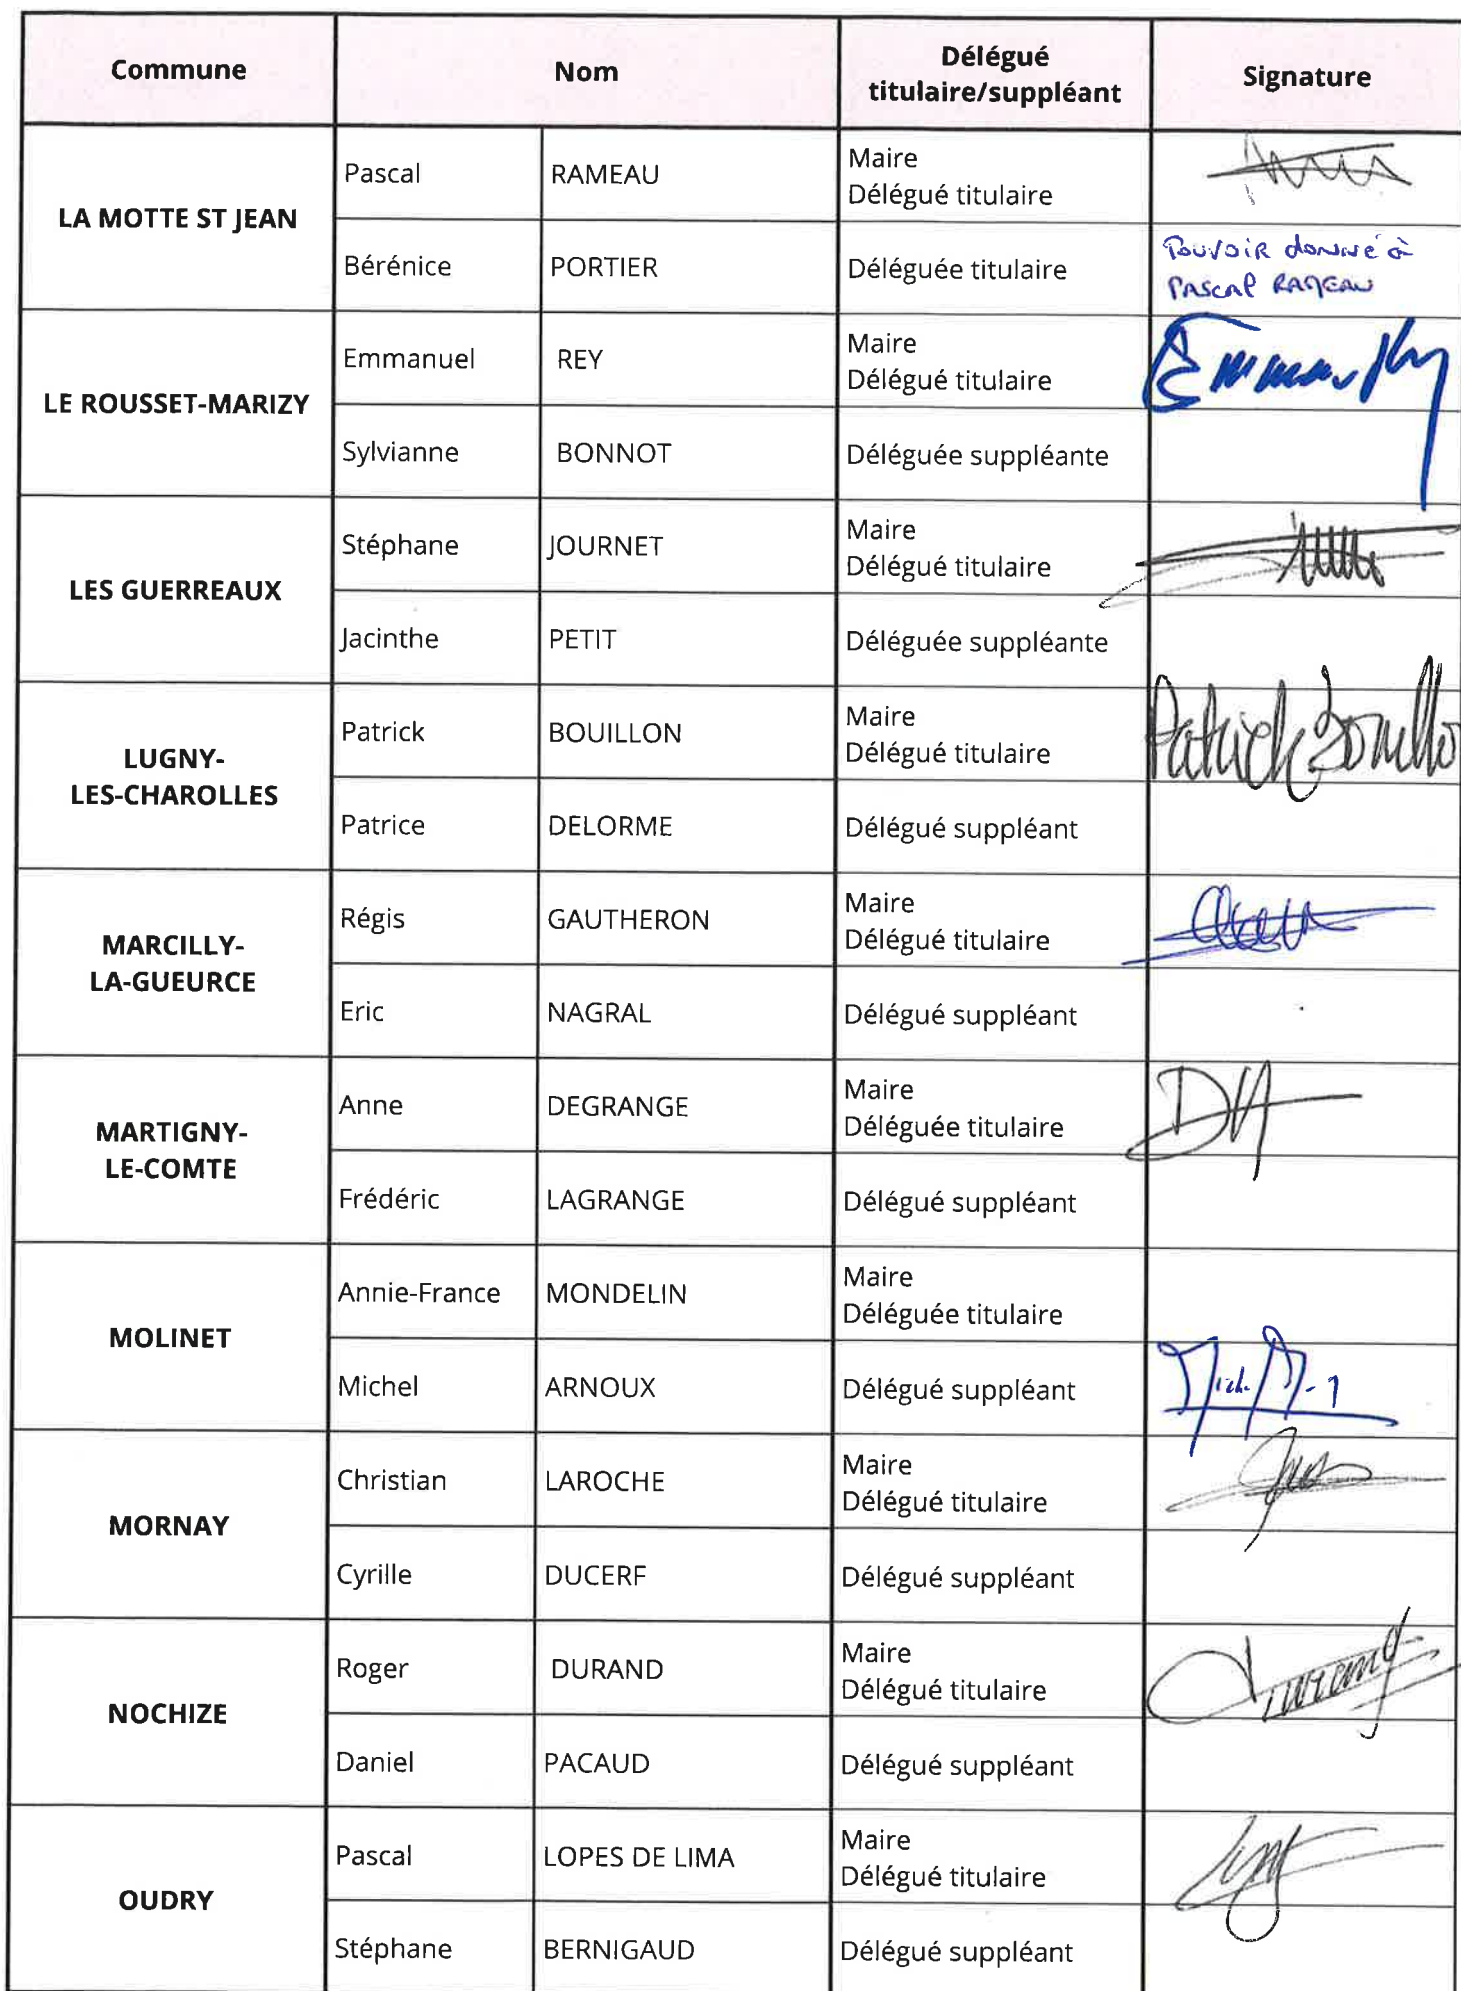 Commune
Nom
Délégué
titulaire/suppléant
Signature
LA MOTTE ST JEAN
Pascal
RAMEAU
Maire
Délégué titulaire
Bérénice
PORTIER
Déléguée titulaire
Pouvoir donné à
Pascal RAMEAU
LE ROUSSET-MARIZY
Emmanuel
REY
Maire
Délégué titulaire
Sylvianne
BONNOT
Déléguée suppléante
LES GUERREAUX
Stéphane
JOURNET
Maire
Délégué titulaire
Jacinthe
PETIT
Déléguée suppléante
LUGNY-
LES-CHAROLLES
Patrick
BOUILLON
Maire
Délégué titulaire
Patrick Bouillo
Patrice
DELORME
Délégué suppléant
MARCILLY-
LA-GUEURCE
Régis
GAUTHERON
Maire
Délégué titulaire
Eric
NAGRAL
Délégué suppléant
MARTIGNY-
LE-COMTE
Anne
DEGRANGE
Maire
Déléguée titulaire
Frédéric
LAGRANGE
Délégué suppléant
MOLINET
Annie-France
MONDELIN
Maire
Déléguée titulaire
Michel
ARNOUX
Délégué suppléant
MORNAY
Christian
LAROCHE
Maire
Délégué titulaire
Cyrille
DUCERF
Délégué suppléant
NOCHIZE
Roger
DURAND
Maire
Délégué titulaire
Daniel
PACAUD
Délégué suppléant
OUDRY
Pascal
LOPES DE LIMA
Maire
Délégué titulaire
Stéphane
BERNIGAUD
Délégué suppléant